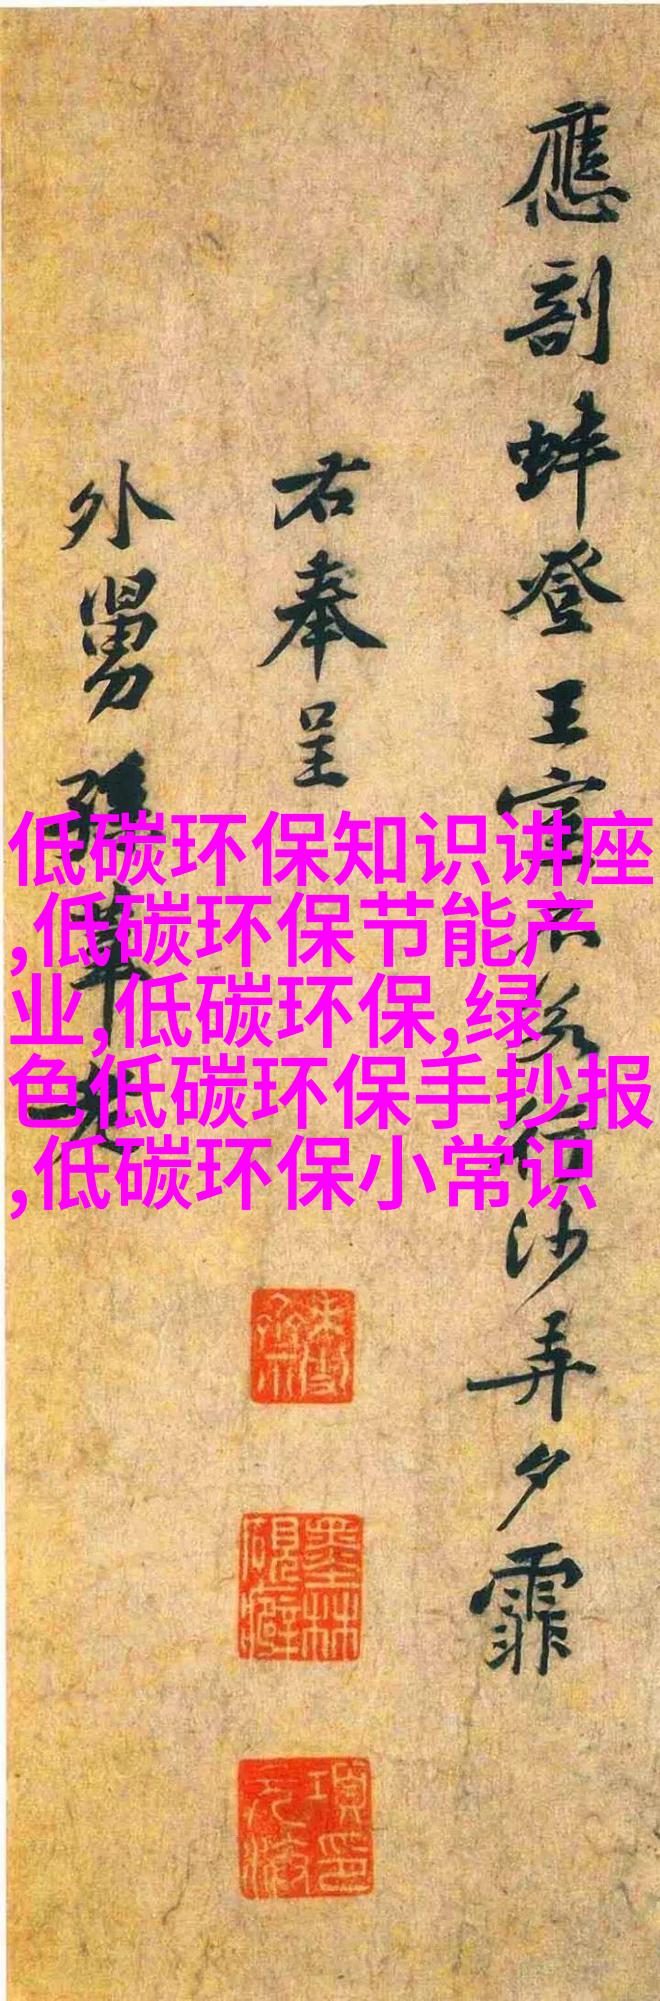 應剖蚌登王室不若行沙弄夕霏
右奉呈
外舅
低碳环保知识讲座
,低碳环保节能产
业,低碳环保,绿
色低碳环保手抄报
,低碳环保小常识